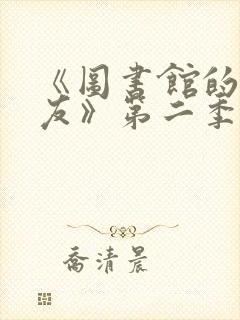 《圖書館的
友》第二季
喬清晨